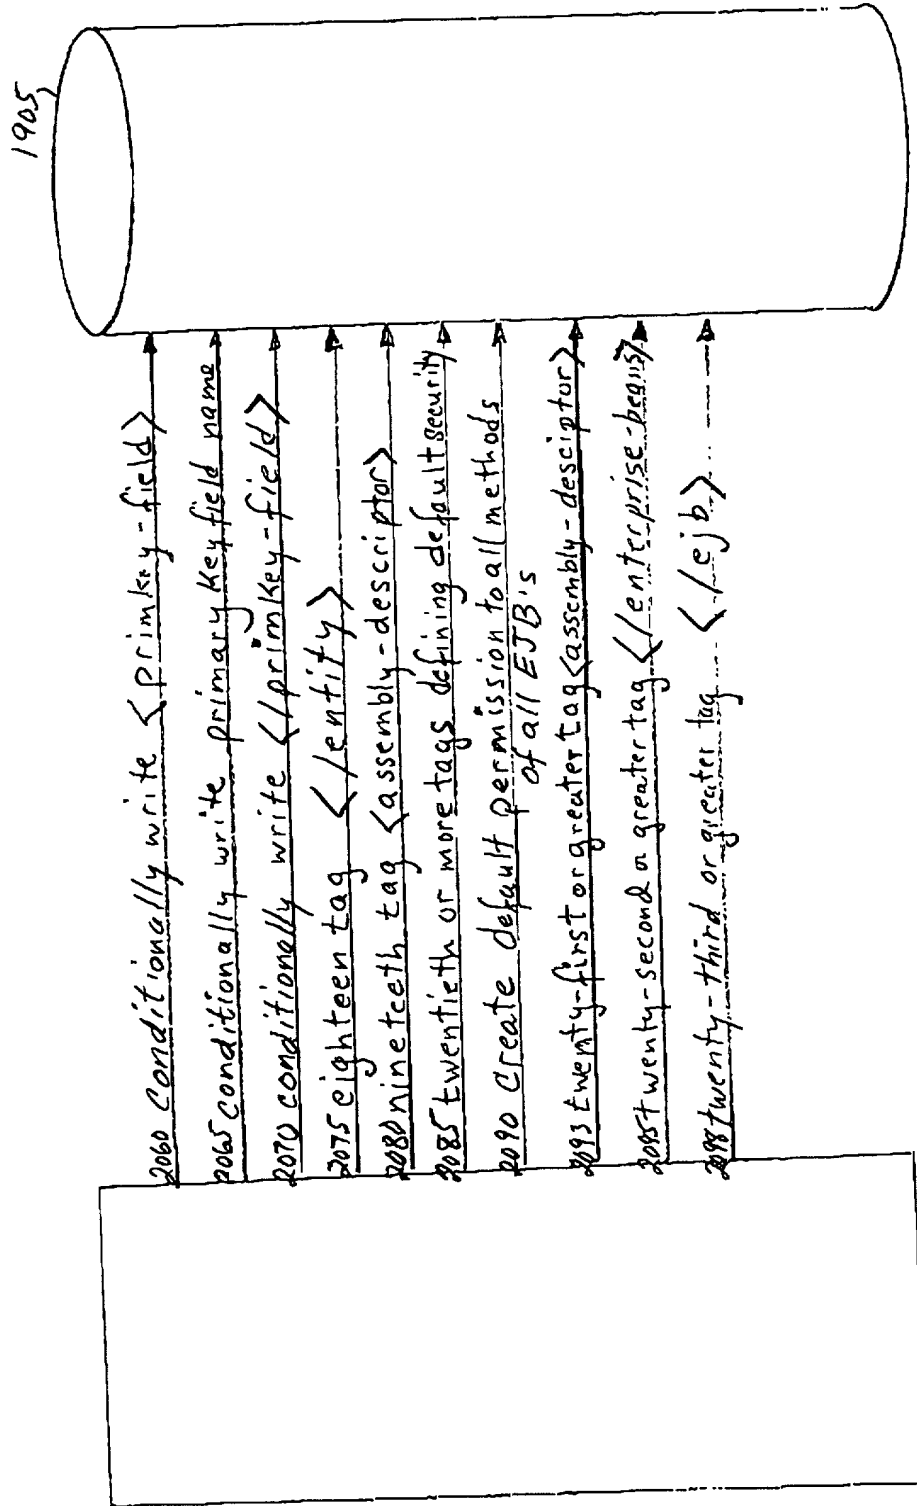 1905
2060 conditionally write <primkey-field>
2065 conditionally write primary key field name
2070 conditionally write </primkey-field>
2075 eighteen tag </entity>
2080 nineteeth tag <assembly-descriptor>
2085 twentieth or more tags defining default security
2090 Create default permission to all methods
of all EJB's
2093 twenty-first or greater tag <assembly-desciptor>
2095 twenty-second or greater tag </enterprise-beans>
2098 twenty-third or greater tag </ejb>